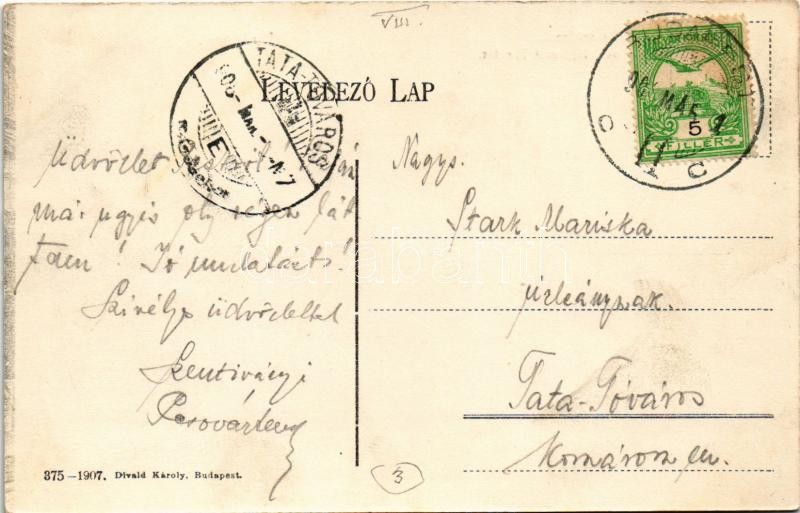 VIII.
LEVELEZŐ LAP
TATA-TÓVÁROS
MAGYAR KIR. POSTA
5
FILLÉR
C
Üdvözlet
már ugyis oly régen lát
tam! Jó mulatást!
Szivélyes üdvözlettel
Szentiványi
Nagys.
Stark Mariska
úrleánynak.
Tata-Tóváros
Komárom m.
375—1907. Divald Károly, Budapest.
3